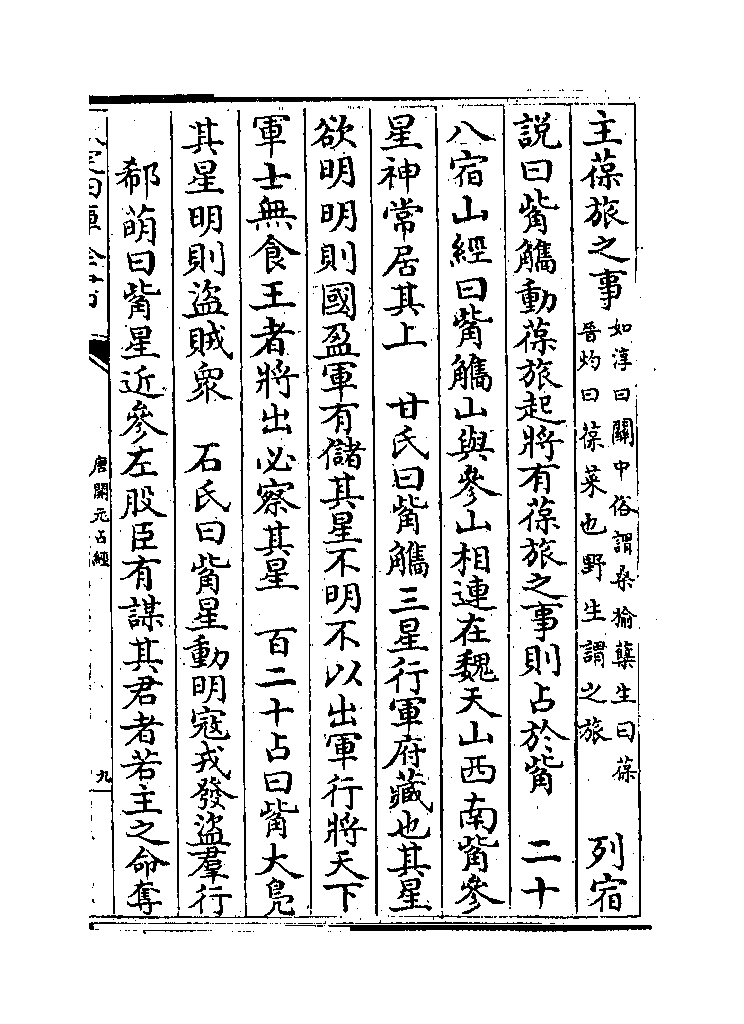 主葆旅之事如淳曰關中俗謂桑榆蘖生曰葆晉灼曰葆菜也野生謂之旅　列宿
說曰觜觿動葆旅起將有葆旅之事則占於觜　二十
八宿山經曰觜觿山與參山相連在魏天山西南觜參
星神常居其上　甘氏曰觜觿三星行軍府藏也其星
欲明明則國盈軍有儲其星不明不以出軍行將天下
軍士無食王者將出必察其星　百二十占曰觜大鳧
其星明則盜賊衆　石氏曰觜星動明寇戎發盜羣行
郗萌曰觜星近參左股臣有謀其君者若主之命奪
唐開元占經
九